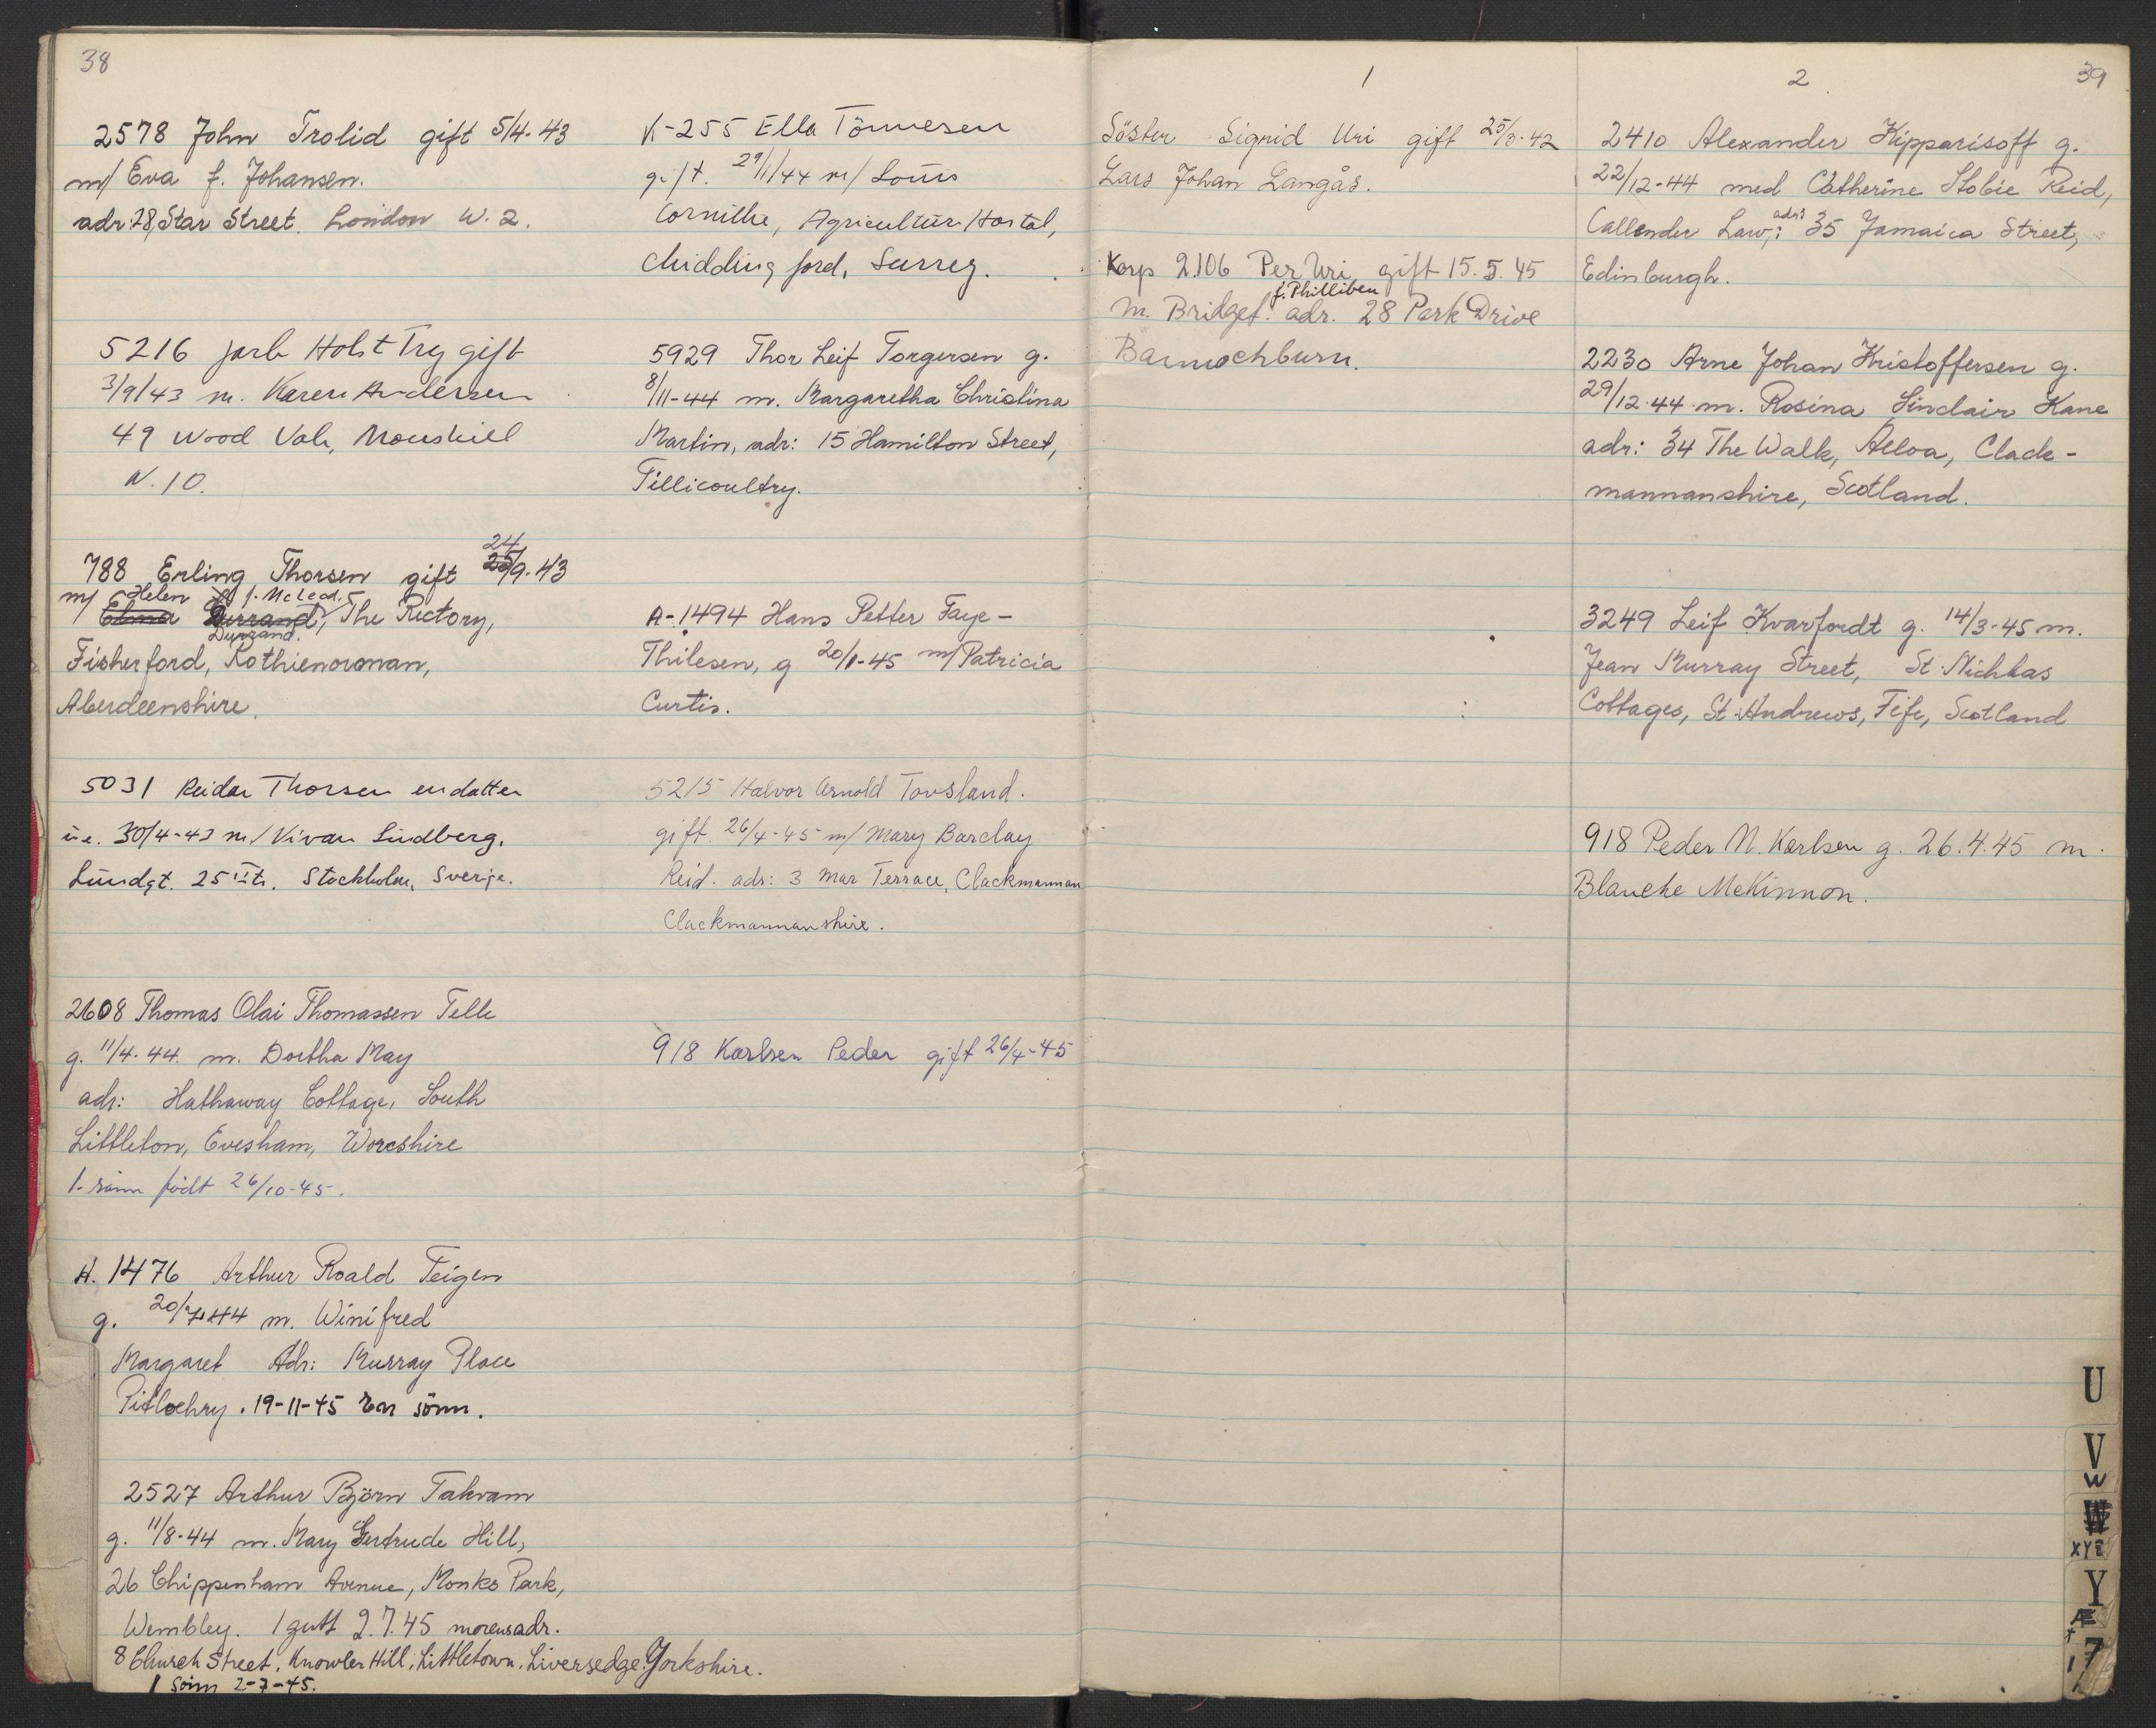 38
2578 John Trolid gift 5/4-43
m/ Eva f. Johansen.
adr: 28, Star Street. London W. 2.
5216 Jarle Holst Try gift
3/9/43 m. Karen Andersen
49 Wood Vale,
N. 10.
788 Erling Thorsen gift 24 25/9-43
m/ Helen f. McLead.
Elma Durrand, The Rectory,
Durrand.
Fisherford, Rothienorman,
Aberdeenshire.
5031 Reidar Thorsen en datter
u.e. 30/4-43 m/ Vivan Lindberg.
Lundgt. 25 Stockholm, Sverje.
2608 Thomas Olai Thomassen Telle
g. 11/4-44. m. Dortha May
adr: Hathaway Cottage, South
Littleton, Evesham, Worcshire
1. sønn født 26/10-45.
A. 1476 Arthur Roald Teigen
g. 20/7-44 m. Winifred
Margaret Adr: Murray Place
Pitlochry. 19-11-45 En sönn.
2527 Arthur Björn Takvam
g. 11/8-44 m. Mary Gertrude Hill,
26 Chippenham Avenue, Monks Park,
Wembley. 1 gutt 2.7.45 morens adr.
8 Church Street, Knowler Hill, Littletown, Liversedge. Yorkshire.
1 sönn 2-7-45.
K-255 Ella Tönnesen
gift. 29/1/44 m/ Louis
Agricultur. Hostal,
Chiddingford, Surrey.
5929 Thor Leif Torgersen g.
8/11-44 m. Margaretha Christina
Martin, adr: 15 Hamilton Street,
Tillicoultry.
A-1494 Hans Petter Faye-
Thilesen, g 20/1-45 m/ Patricia
Curtis.
5215 Halvor Arnold Tovsland.
gift. 26/4-45 m/ Mary Barclay
Reid. adr: 3 Mar Terrace, Clackmannan
Clackmannanshire.
918 Karlsen Peder gift 26/4-45
1
Söster Sigrid Uri gift 25/3-42
Lars Johan Langås.
Korp 2.106 Per Uri gift 15.5.45
f. Philliben
m. Bridget. adr. 28 Park Drive
Bannochburn.
2
39
2410 Alexander Kipparisoff g.
22/12-44 med Catherine Stobie Reid,
Callender Law; adr: 35 Jamaica Street,
Edinburgh.
2230 Arne Johan Kristoffersen g.
29/12-44 m. Rosina Sinclair Kane
adr: 34 The Walk, Alloa, Clack-
mannanshire, Scotland.
3249 Leif Kvarfordt g. 14/3-45 m.
Jean Murray Street, St. Nichlas
Cottages, St. Andrews, Fife, Scotland
918 Peder N. Karlsen g. 26.4.45 m.
Blanche McKinnon.
U
V
W
W
XYZ
Y
Æ